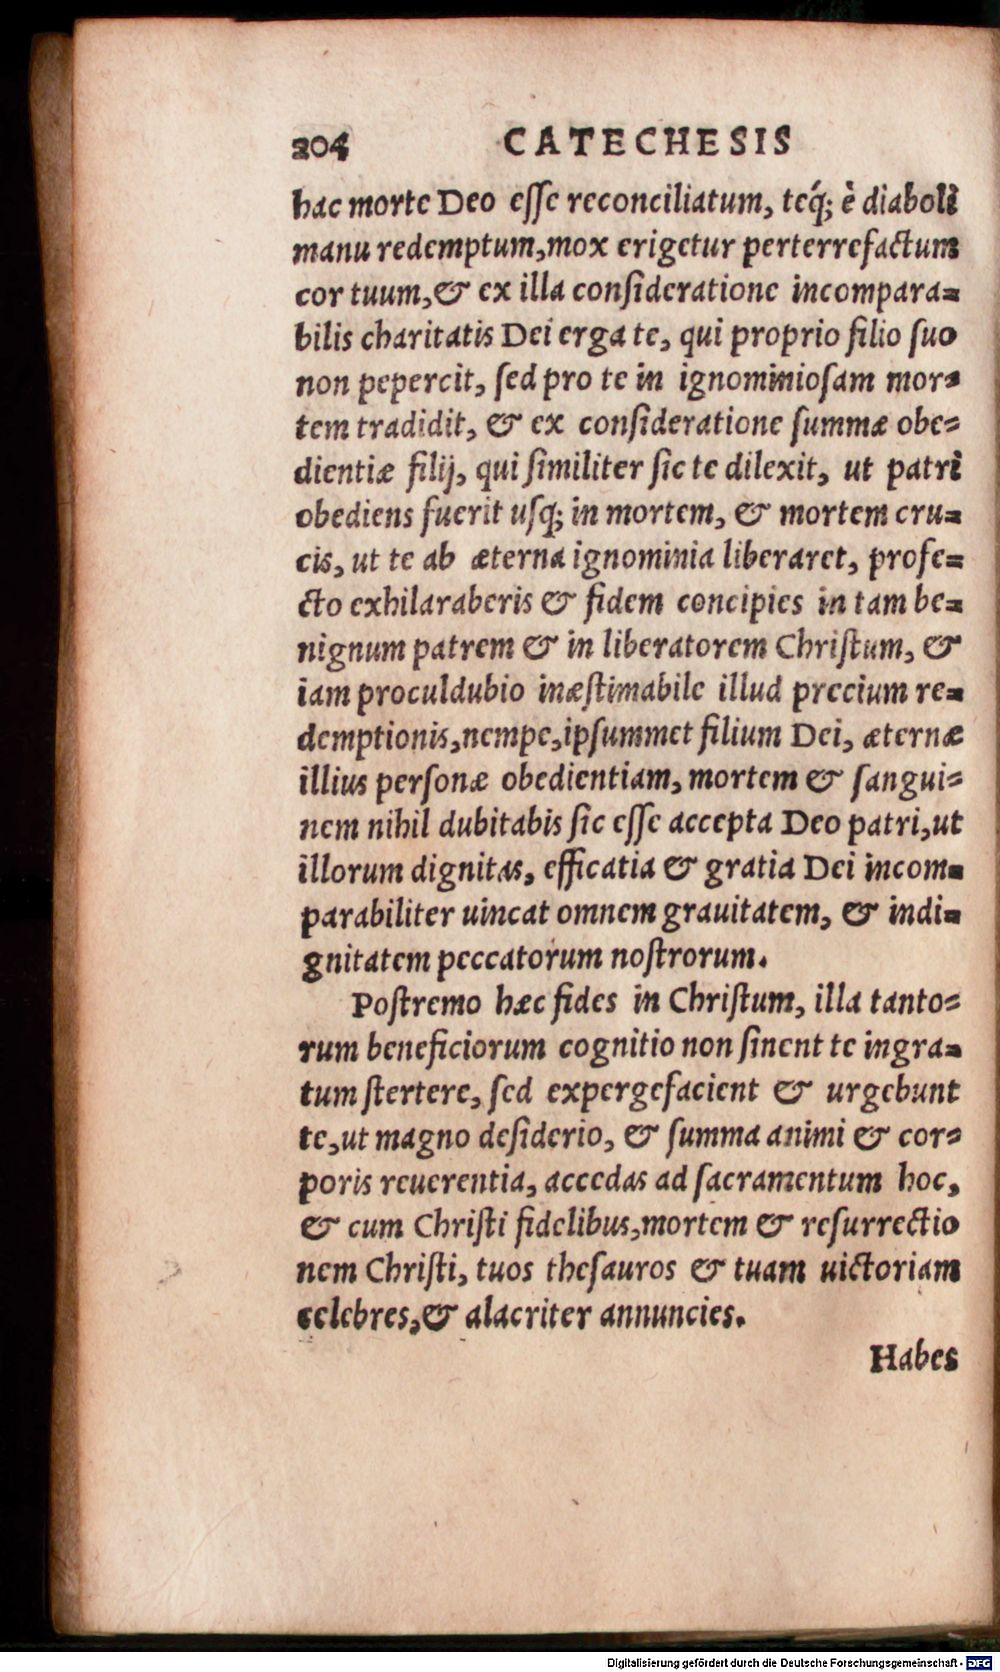 204 CATECHESIS
hac morte Deo eſſe reconciliatum, teq́; è diaboli
manu redemptum,mox erigetur perterrefactum
cor tuum,& ex illa conſideratione incompara=
bilis charitatis Dei erga te, qui proprio filio ſuo
non pepercit, ſed pro te in ignominioſam mor=
tem tradidit, & ex conſideratione ſummæ obe=
dientiæ filij, qui ſimiliter ſic te dilexit, ut patri
obediens fuerit uſq; in mortem, & mortem cru=
cis, ut te ab æterna ignominia liberaret, profe=
cto exhilaraberis & fidem concipies in tam be=
nignum patrem & in liberatorem Chriſtum, &
iam proculdubio inæſtimabile illud precium re=
demptionis,nempe,ipſummet filium Dei, æternæ
illius perſonæ obedientiam, mortem & ſangui=
nem nihil dubitabis ſic eſſe accepta Deo patri,ut
illorum dignitas, efficatia & gratia Dei incom=
parabiliter uincat omnem grauitatem, & indi=
gnitatem peccatorum noſtrorum.
Poſtremo hæc fides in Chriſtum, illa tanto=
rum beneficiorum cognitio non ſinent te ingra=
tum ſtertere, ſed expergefacient & urgebunt
te,ut magno deſiderio, & ſumma animi & cor=
poris reuerentia, accedas ad ſacramentum hoc,
& cum Chriſti fidelibus,mortem & reſurrectio
nem Chriſti, tuos theſauros & tuam uictoriam
celebres,& alacriter annuncies.
Habes
Digitalisierung gefördert durch die Deutsche Forschungsgemeinschaft - DFG